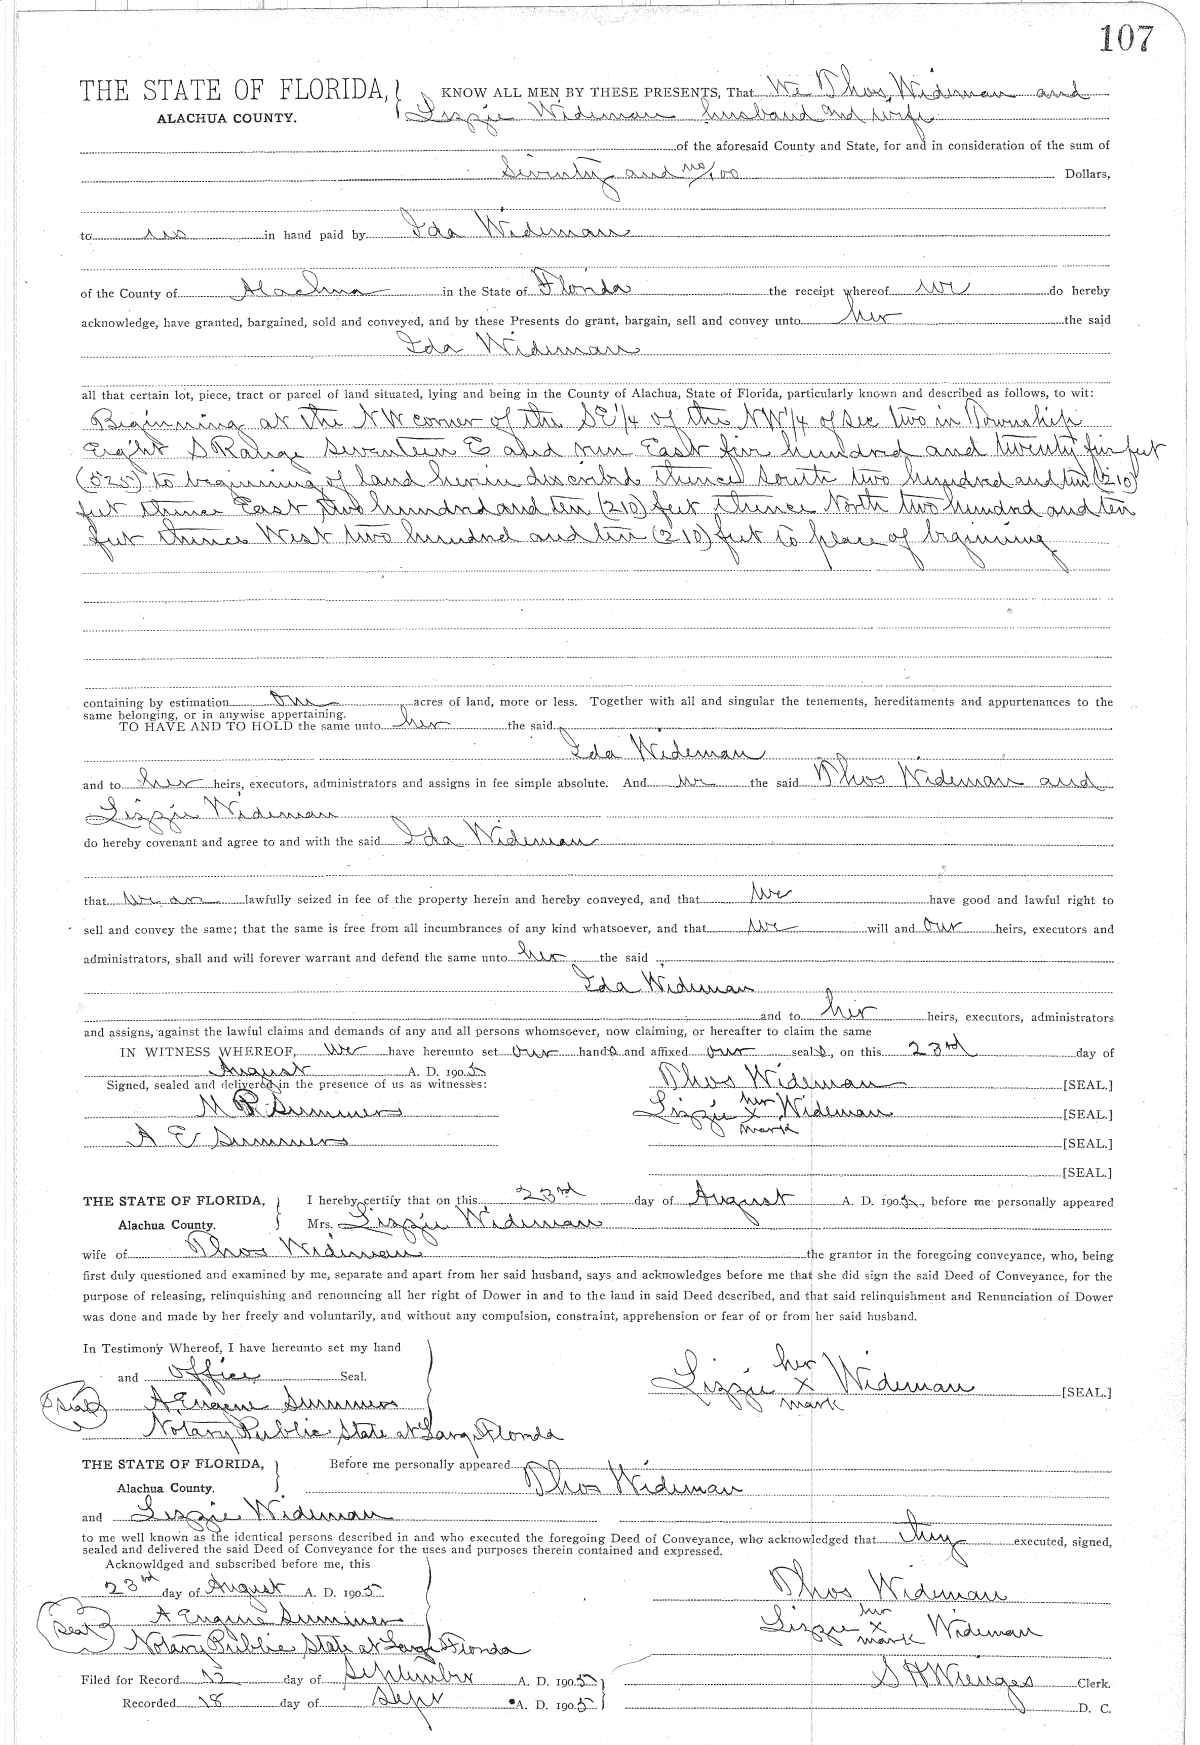 107
THE STATE OF FLORIDA, KNOW ALL MEN BY THESE PRESENTS, That We Thos, Wideman and
ALACHUA COUNTY. Lizzie Wideman husband and wife
of the aforesaid County and State, for and in consideration of the sum of
Seventy and no/100 Dollars,
to us in hand paid by Ida Wideman
of the County of Alachua in the State of Florida the receipt whereof we do hereby
acknowledge, have granted, bargained, sold and conveyed, and by these Presents do grant, bargain, sell and convey unto her the said
Ida Wideman
all that certain lot, piece, tract or parcel of land situated, lying and being in the County of Alachua, State of Florida, particularly known and described as follows, to wit:
Beginning at the NW corner of the SE 1/4 of the NW 1/4 of Sec two in Township
Eight S Range Seventeen E and run East five hundred and twenty five feet
(525) to beginning of land herein described thence South two hundred and ten (210)
feet thence East two hundred and ten (210) feet thence North two hundred and ten
feet thence West two hundred and ten (210) feet to place of beginning
containing by estimation one acres of land, more or less. Together with all and singular the tenements, hereditaments and appurtenances to the
same belonging, or in anywise appertaining.
TO HAVE AND TO HOLD the same unto her the said
Ida Wideman
and to her heirs, executors, administrators and assigns in fee simple absolute. And we the said Thos Wideman and
Lizzie Wideman
do hereby covenant and agree to and with the said Ida Wideman
that we are lawfully seized in fee of the property herein and hereby conveyed, and that we have good and lawful right to
sell and convey the same; that the same is free from all incumbrances of any kind whatsoever, and that we will and our heirs, executors and
administrators, shall and will forever warrant and defend the same unto her the said
Ida Wideman
and to her heirs, executors, administrators
and assigns, against the lawful claims and demands of any and all persons whomsoever, now claiming, or hereafter to claim the same
IN WITNESS WHEREOF, we have hereunto set our hands and affixed our seals, on this 23rd day of
August A. D. 1905
Signed, sealed and delivered in the presence of us as witnesses: Thos Wideman [SEAL.]
M R Summers Lizzie her x mark Wideman [SEAL.]
A E Summers [SEAL.]
[SEAL.]
THE STATE OF FLORIDA, I hereby certify that on this 23rd day of August A. D. 1905, before me personally appeared
Alachua County. Mrs. Lizzie Wideman
wife of Thos Wideman the grantor in the foregoing conveyance, who, being
first duly questioned and examined by me, separate and apart from her said husband, says and acknowledges before me that she did sign the said Deed of Conveyance, for the
purpose of releasing, relinquishing and renouncing all her right of Dower in and to the land in said Deed described, and that said relinquishment and Renunciation of Dower
was done and made by her freely and voluntarily, and without any compulsion, constraint, apprehension or fear of or from her said husband.
In Testimony Whereof, I have hereunto set my hand
and office Seal. Lizzie her x mark Wideman [SEAL.]
Seal A. Eugene Summers
Notary Public State at Large Florida
THE STATE OF FLORIDA, Before me personally appeared
Alachua County. Thos Wideman
and Lizzie Wideman
to me well known as the identical persons described in and who executed the foregoing Deed of Conveyance, who acknowledged that they executed, signed,
sealed and delivered the said Deed of Conveyance for the uses and purposes therein contained and expressed.
Acknowldged and subscribed before me, this
23rd day of August A. D. 1905 Thos Wideman
Seal A Eugene Summers Lizzie her x mark Wideman
Notary Public State at Large Florida
Filed for Record 12 day of September A. D. 1905 S H Wienges Clerk.
Recorded 18 day of Sept A. D. 1905 D. C.